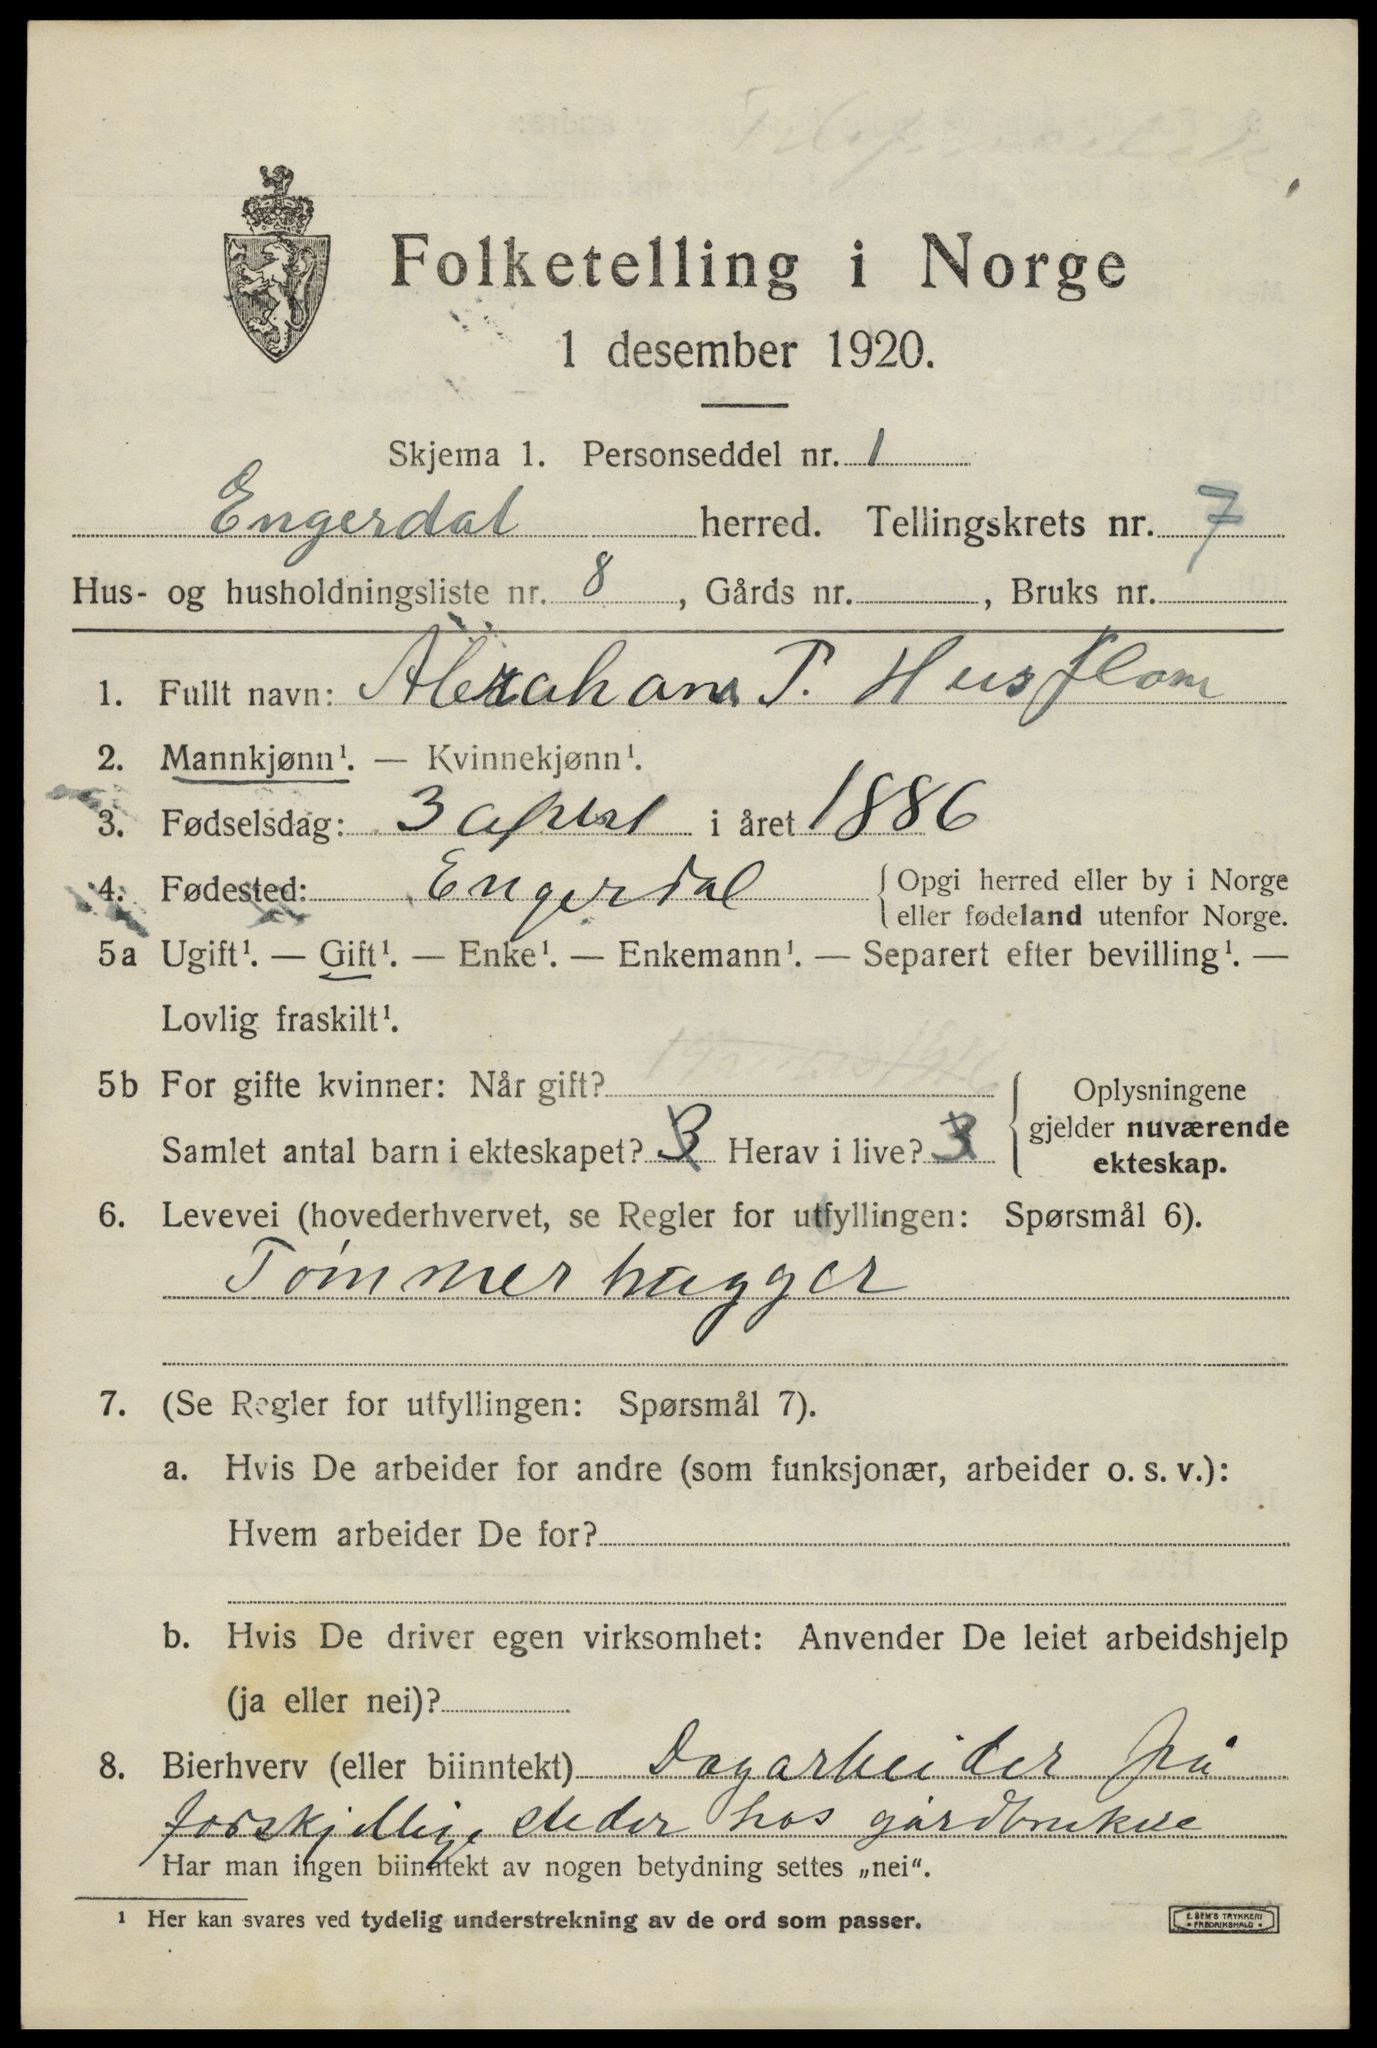 Folketelling i Norge
1 desember 1920.
Skjema 1. Personseddel nr. 1
Engerdal herred. Tellingskrets nr. 7
Hus- og husholdningsliste nr. 8, Gårds nr. , Bruks nr.
1. Fullt navn: Abraham P. Husfloen
2. Mannkjønn¹. — Kvinnekjønn¹.
3. Fødselsdag: 3 april i året 1886
4. Fødested: Engerdal { Opgi herred eller by i Norge
eller fødeland utenfor Norge.
5a Ugift¹. — Gift¹. — Enke¹. — Enkemann¹. — Separert efter bevilling¹. —
Lovlig fraskilt¹.
5b For gifte kvinner: Når gift? { Oplysningene
gjelder nuværende
ekteskap.
Samlet antal barn i ekteskapet? 3 Herav i live? 3
6. Levevei (hovederhvervet, se Regler for utfyllingen: Spørsmål 6).
Tømmerhugger
7. (Se Regler for utfyllingen: Spørsmål 7).
a. Hvis De arbeider for andre (som funksjonær, arbeider o. s. v.):
Hvem arbeider De for?
b. Hvis De driver egen virksomhet: Anvender De leiet arbeidshjelp
(ja eller nei)?
8. Bierhverv (eller biinntekt) Dagarbeider på
forskjellige steder hos gårdbrukere
Har man ingen biinntekt av nogen betydning settes „nei“.
¹ Her kan svares ved tydelig understrekning av de ord som passer.
E. SEM'S TRYKKERI
• FREDRIKSHALD •